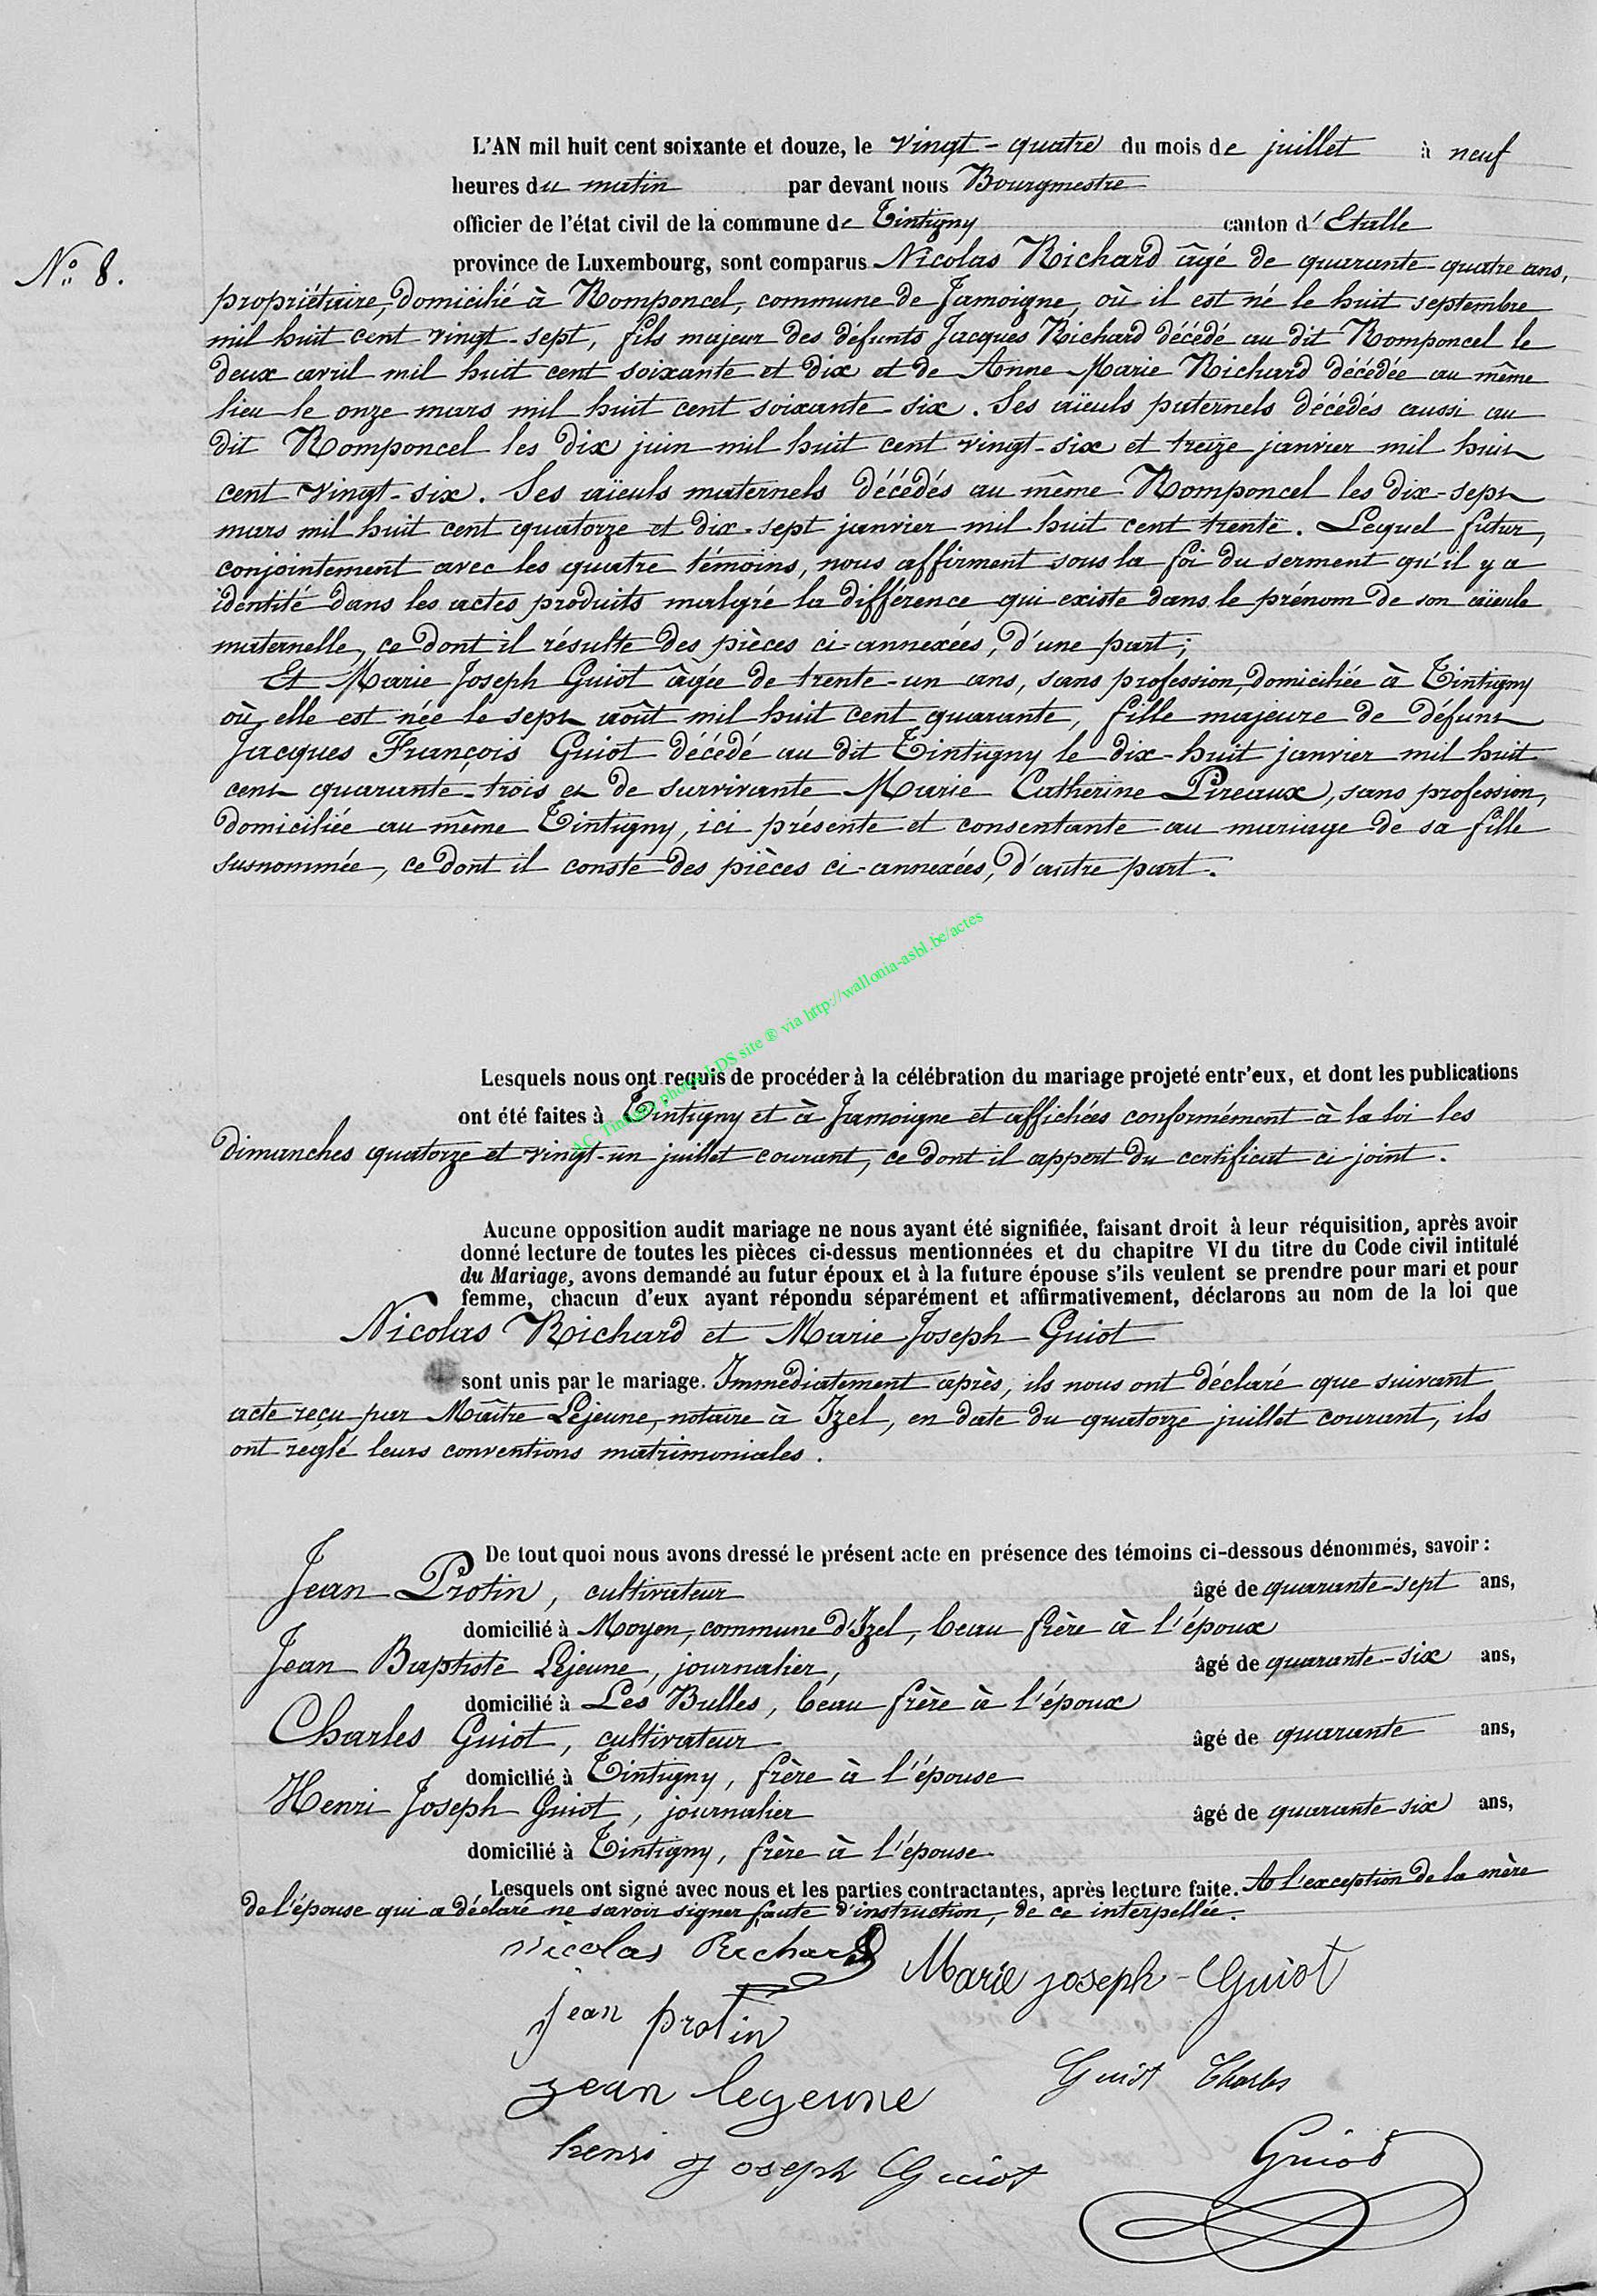 L'AN mil huit cent soixante et douze, le vingt-quatre du mois de juillet à neuf
heures du matin par devant nous Bourgmestre
officier de l'état civil de la commune de Tintigny canton d'Etalle
N° 8.
province de Luxembourg, sont comparus Nicolas Richard âgé de quarante-quatre ans,
propriétaire, domicilié à Romponcel, commune de Jamoigne, où il est né le huit septembre
mil huit cent vingt-sept, fils majeur des défunts Jacques Richard décédé au dit Romponcel le
deux avril mil huit cent soixante et dix et de Anne Marie Richard décédée au même
lieu le onze mars mil huit cent soixante-six. Ses aïeuls paternels décédés aussi au
dit Romponcel les dix juin mil huit cent vingt-six et treize janvier mil huit
cent vingt-six. Ses aïeuls maternels décédés au même Romponcel les dix-sept
mars mil huit cent quatorze et dix-sept janvier mil huit cent trente. Lequel futur,
conjointement avec les quatre témoins, nous affirment sous la foi du serment qu'il y a
identité dans les actes produits malgré la différence qui existe dans le prénom de son aïeule
maternelle, ce dont il résulte des pièces ci-annexées, d'une part;
Et Marie Joseph Guiot âgée de trente-un ans, sans profession, domiciliée à Tintigny
où elle est née le sept août mil huit cent quarante, fille majeure de défunt
Jacques François Guiot décédé au dit Tintigny le dix-huit janvier mil huit
cent quarante-trois et de survivante Marie Catherine Pireaux, sans profession,
domiciliée au même Tintigny, ici présente et consentante au mariage de sa fille
susnommée, ce dont il conste des pièces ci-annexées, d'autre part.
AC Tintigny photos LDS site ® via http://wallonia-asbl.be/actes
Lesquels nous ont requis de procéder à la célébration du mariage projeté entr'eux, et dont les publications
ont été faites à Tintigny et à Jamoigne et affichées conformément à la loi les
dimanches quatorze et vingt-un juillet courant, ce dont il appert du certificat ci-joint.
Aucune opposition audit mariage ne nous ayant été signifiée, faisant droit à leur réquisition, après avoir
donné lecture de toutes les pièces ci-dessus mentionnées et du chapitre VI du titre du Code civil intitulé
du Mariage, avons demandé au futur époux et à la future épouse s'ils veulent se prendre pour mari et pour
femme, chacun d'eux ayant répondu séparément et affirmativement, déclarons au nom de la loi que
Nicolas Richard et Marie Joseph Guiot
sont unis par le mariage. Immédiatement après, ils nous ont déclaré que suivant
acte reçu par Maître Lejeune, notaire à Izel, en date du quatorze juillet courant, ils
ont reglé leurs conventions matrimoniales.
De tout quoi nous avons dressé le présent acte en présence des témoins ci-dessous dénommés, savoir :
Jean Protin, cultivateur âgé de quarante-sept ans,
domicilié à Moyen, commune d'Izel, beau frère à l'époux
Jean Baptiste Lejeune, journalier, âgé de quarante-six ans,
domicilié à Les Bulles, beau frère à l'époux
Charles Guiot, cultivateur âgé de quarante ans,
domicilié à Tintigny, frère à l'épouse
Henri Joseph Guiot, journalier âgé de quarante-six ans,
domicilié à Tintigny, frère à l'épouse
Lesquels ont signé avec nous et les parties contractantes, après lecture faite. A l'exception de la mère
de l'épouse qui a déclaré ne savoir signer faute d'instruction, de ce interpellée.
Nicolas Richard
Marie joseph Guiot
jean protin
Guiot Charles
jean legeune
henri joseph Guiot
Guiot